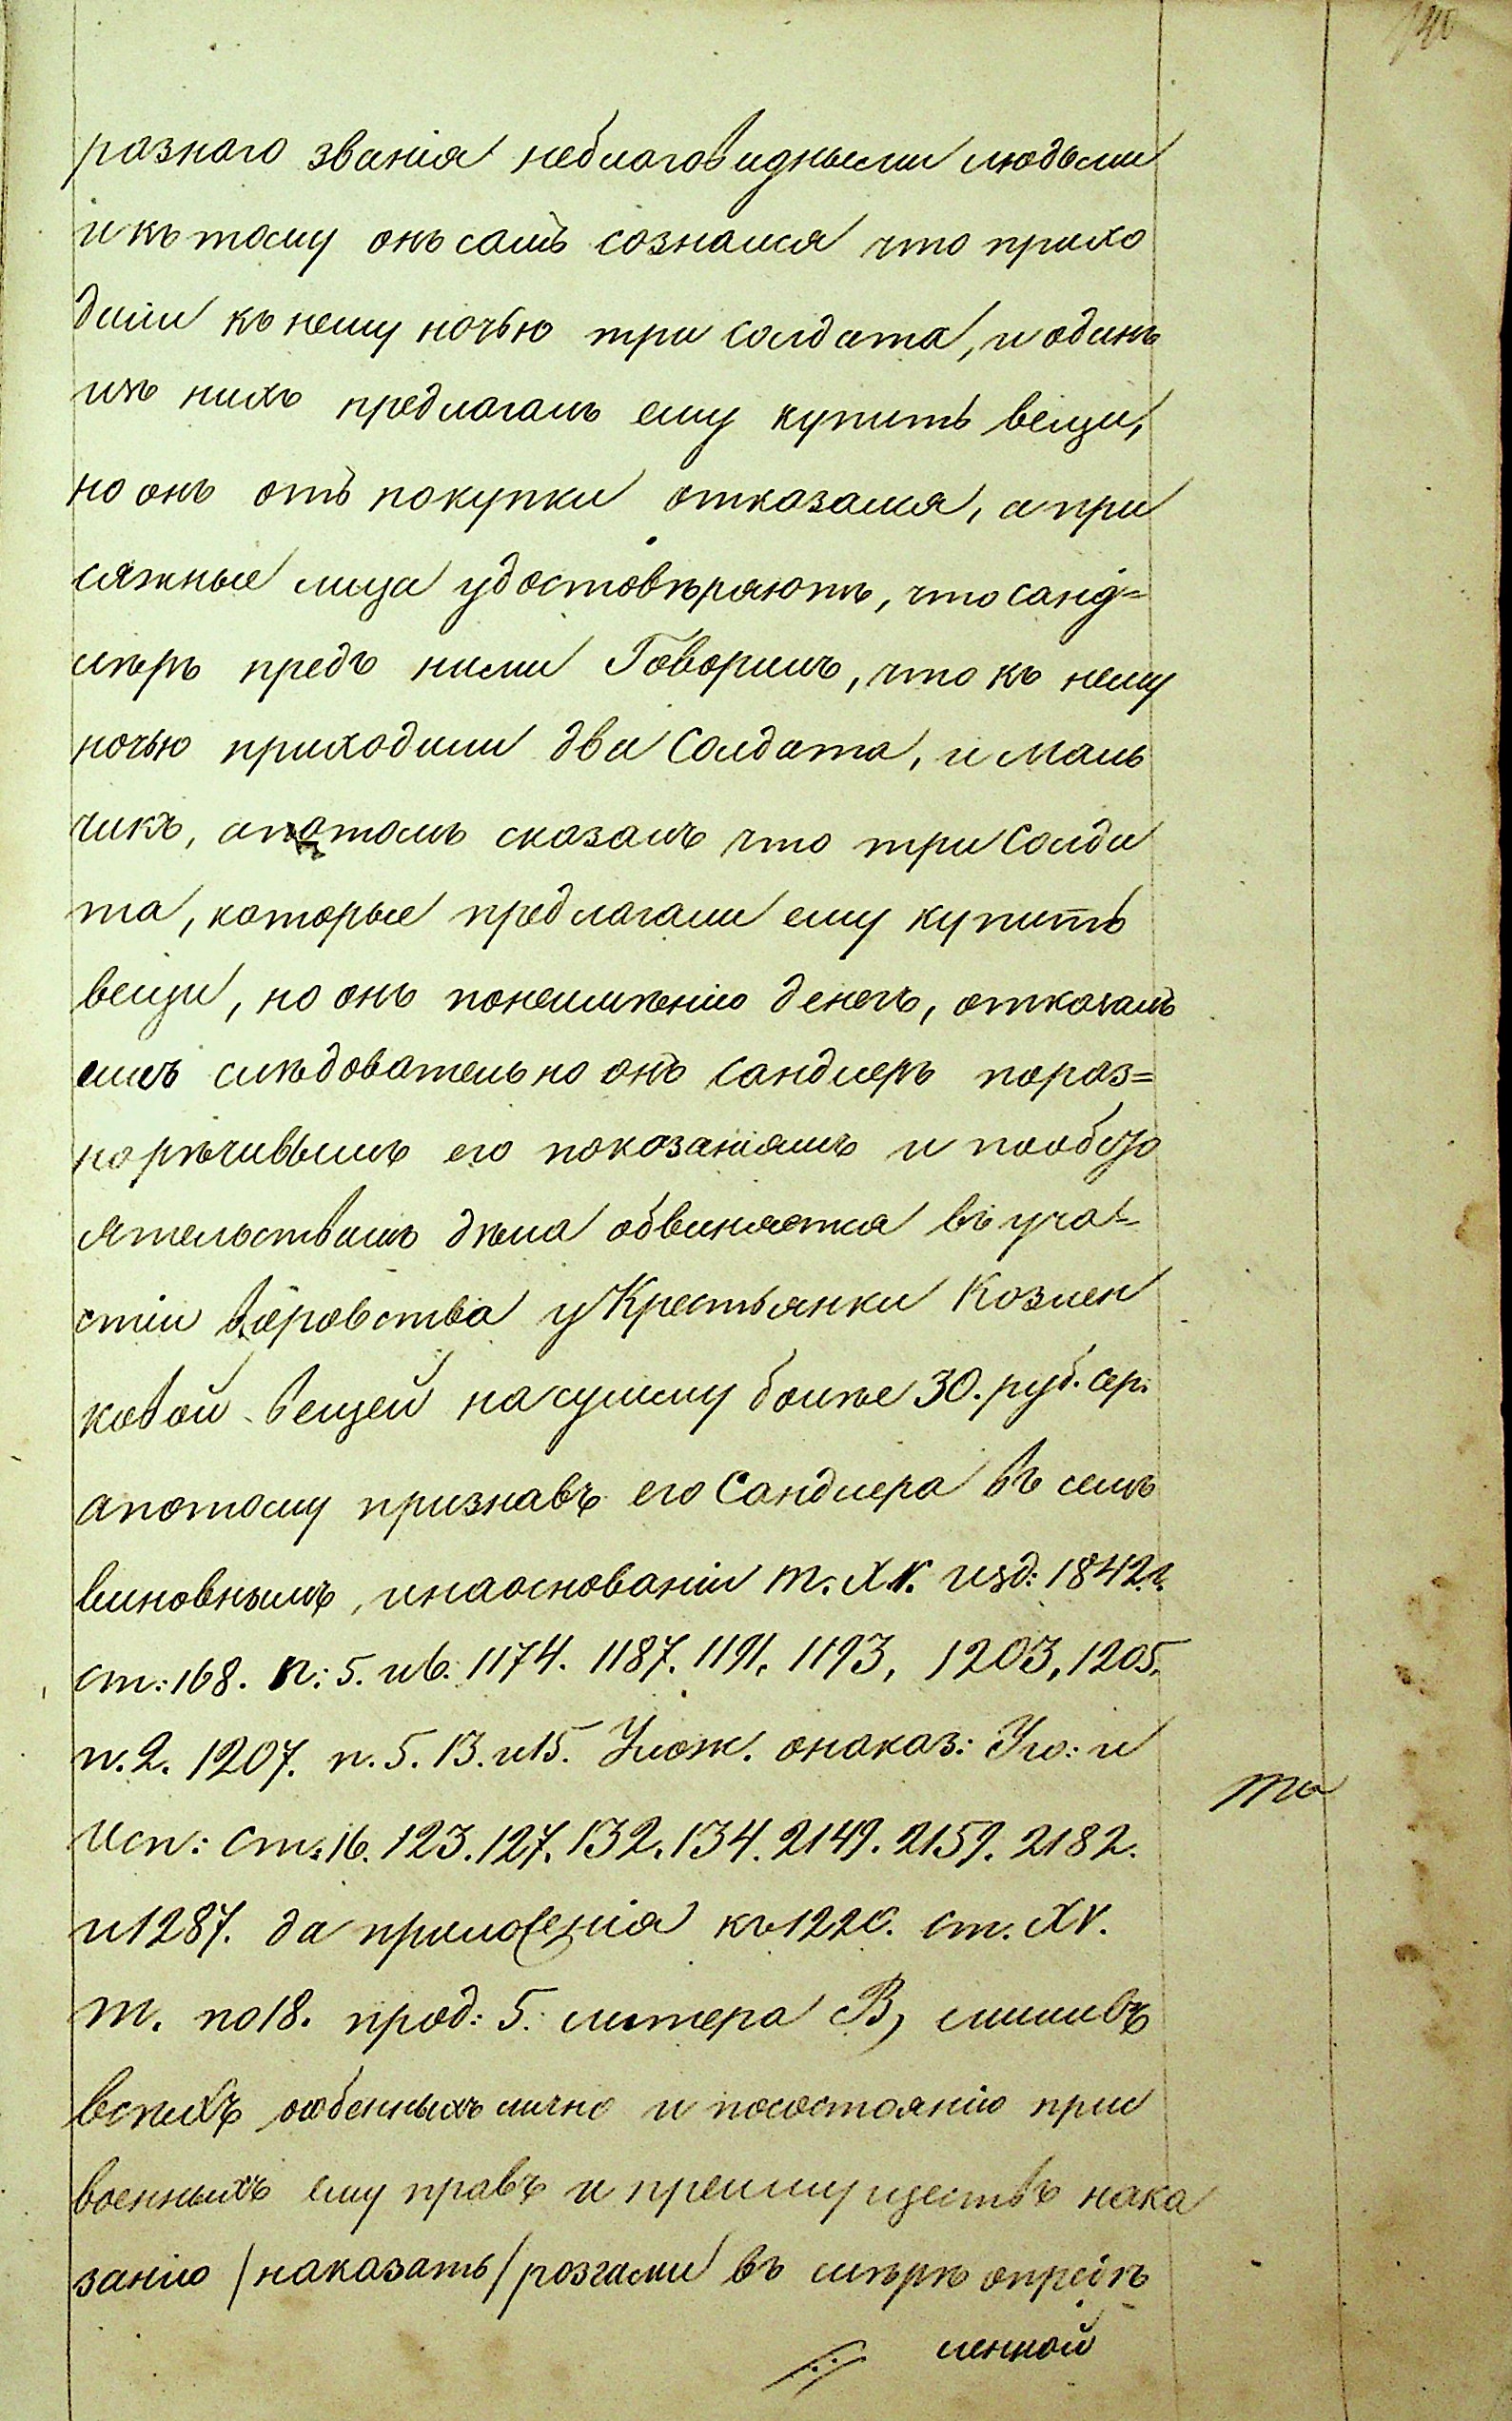 разнаго званія неблаговидными людьми
и къ тому онъ самъ сознался что прихо
дили къ нему ночью три солдата, и одинъ
изъ нихъ предлагалъ ему купить вещи,
но онъ отъ покупки отказался, а при
сяжные лица удостовѣряютъ, что санд=
лѣръ предъ ними Говорилъ, что къ нему
ночью приходили два солдата, и маль
чикъ, а потомъ сказалъ что три солда
та, которые предлагали ему купить
вещи, но онъ понеимѣнію денегъ, отказалъ
слѣдовательно онъ сандлеръ пораз=
норѣчивымъ его показаніямъ и пообсто
ятельствамъ дѣла обвиняется въ уча=
стіи воровства у Крестьянки Козлен
ковой вещей на сумму болѣе 30. руб. сер:
апотому признавъ его Сандлера въ семъ
виновнымъ, инаоснованіи т. XV. изд: 1842 г.
ст: 168. п: 5. и 6. 1174. 1187. 1191. 1193, 1203, 1205.
п. 2. 1207. п. 5. 13. и 15. Улож. онаказ: Уго: и
Исп: ст: 16. 123. 127. 132. 134. 2149. 2159. 2182.
и 1287. да приложенія къ 1220. ст. XV.
т. по 18. прод: 5. литера В, лишивъ
всѣхъ особенныхъ лично и посостоянію прис
военныхъ ему правъ и преимуществъ нака
занію /наказать/ розгами въ мѣрѣ опредѣ
ленной
та